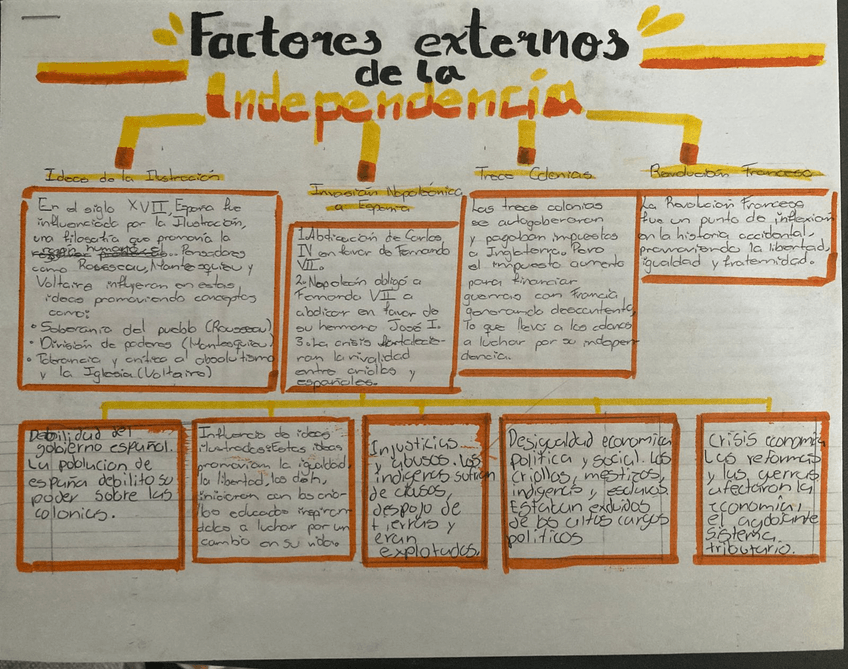 Factores externos
de la
Independencia
Ideas de la Ilustración
En el siglo XVII, España fue
influenciado por la Ilustración,
una filosofía que promovía la
Pensadores
como Rosescau, Montesquieu y
Voltaire influyeron en estas
ideas promoviendo conceptos
como:
• Soberanía del pueblo (Rousseau)
• División de poderes (Montesquieu)
• Tolerancia y crítica al absolutismo
y la Iglesia (Voltaire)
Invasión Napoleónica
a España
1. Abdicación de Carlos
IV en favor de Fernando
VII.
2. Napoleón obligó a
Fernando VII a
abdicar en favor de
su hermano José I.
3. La crisis fortalecie-
ron la rivalidad
entre criollos y
españoles.
Trece Colonias
Las trece colonias
se autogobernaron
y pagaban impuestos
a Inglaterra. Pero
el impuesto aumento
para financiar
guerras con Francia
generando descontento,
lo que llevó a los colonos
a luchar por su indepen-
dencia.
Revolución Francesa
La Revolución Francesa
fue un punto de inflexión
en la historia occidental,
promoviendo la libertad,
igualdad y fraternidad.
Debilidad del
gobierno español.
La poblacion de
españa debilito su
poder sobre las
colonias.
Influencia de ideas
ilustradas: Estas ideas
promovían la igualdad,
la libertad, los
con los crio-
llos educados inspiran-
dolos a luchar por un
cambio en su vida.
Injusticias
y abusos. Los
indígenas sufrian
de abusos,
despojo de
tierras y
eran
explotados.
Desigualdad economica
politica y social. Los
criollos, mestizos,
indigenas y esclavos.
Estaban excluidos
de los altos cargos
politicos
Crisis economica
Las reformas
y las guerras
afectaron la
economia,
el agobiante
sistema
tributario.